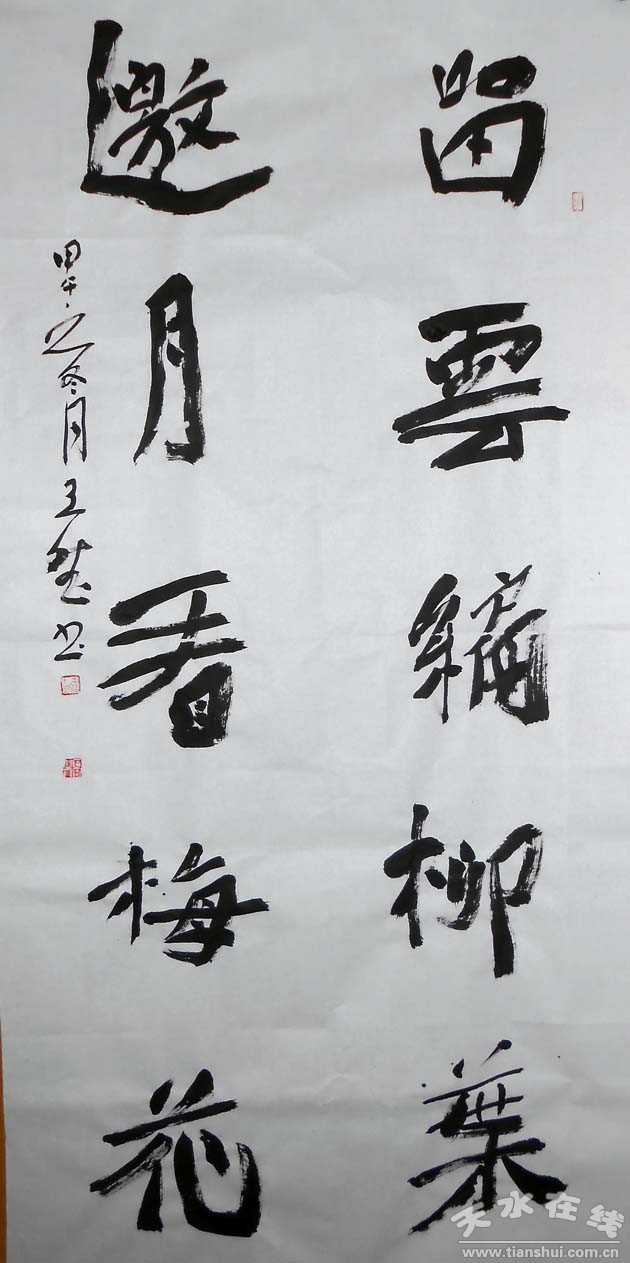 留雲編柳葉
邀月看梅花
甲午之冬月王
天水在线
www.tianshui.com.cn